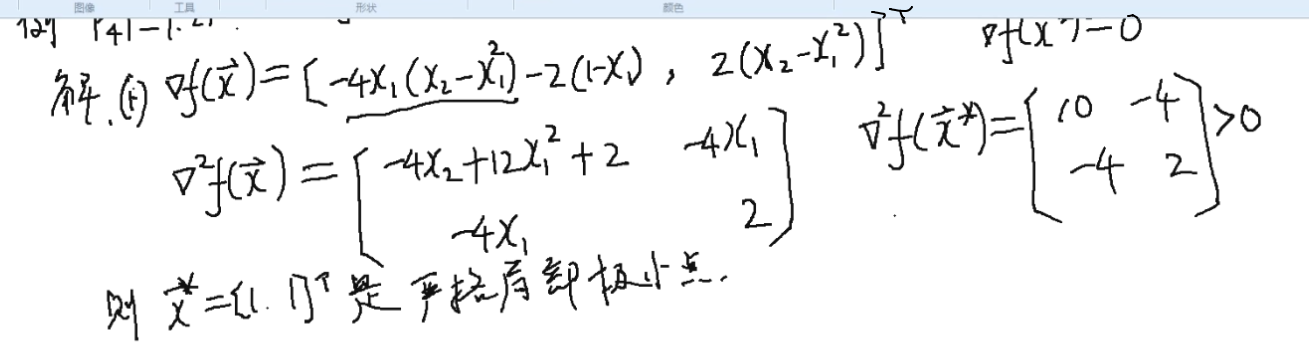 图像 工具 形状 颜色
解.(1) ∇f(x⃗)=[-4x₁(x₂-x₁²)-2(1-x₁), 2(x₂-x₁²)]ᵀ ∇f(x*)=0
∇²f(x⃗)=[-4x₂+12x₁²+2 -4x₁
-4x₁ 2]
∇²f(x⃗*)=[10 -4
-4 2]>0
则 x⃗*=[1.1]ᵀ是严格局部极小点.